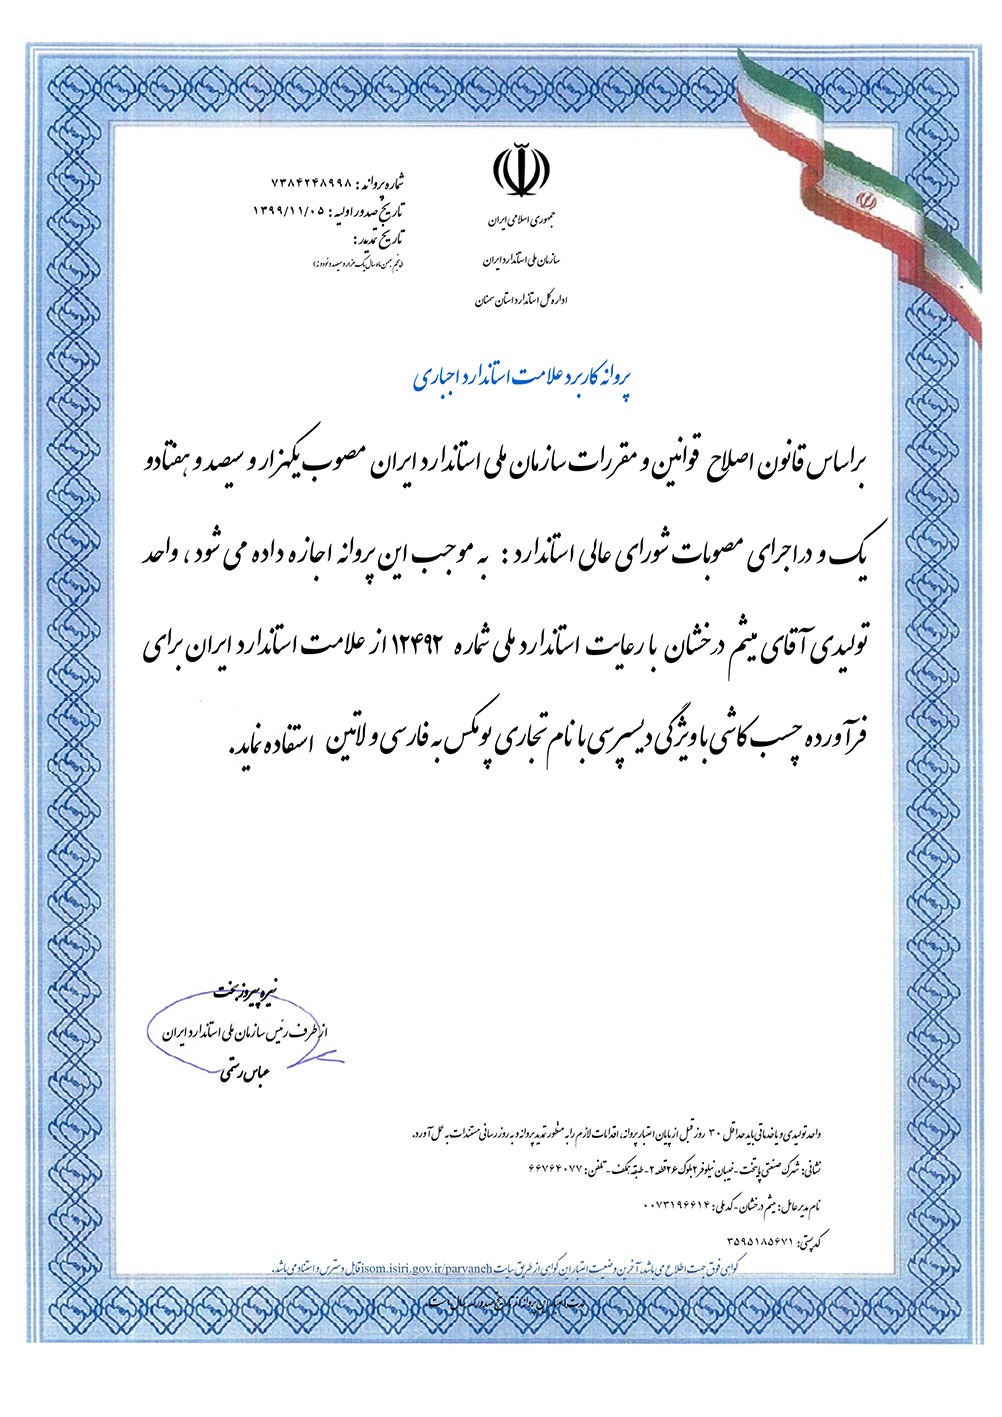 جمهوری اسلامی ایران
سازمان ملی استاندارد ایران
اداره کل استاندارد استان سمنان
شماره پروانه : ۷۳۸۴۲۴۸۹۹۸
تاریخ صدور اولیه : ۱۳۹۹/۱۱/۰۵
تاریخ تمدید:
(پنجم بهمن ماه سال یک هزار و سیصد و نود و نه)
پروانه کاربرد علامت استاندارد اجباری
براساس قانون اصلاح قوانین و مقررات سازمان ملی استاندارد ایران مصوب یکهزار و سیصد و هفتاد و
یک و در اجرای مصوبات شورای عالی استاندارد : به موجب این پروانه اجازه داده می شود ، واحد
تولیدی آقای میثم درخشان با رعایت استاندارد ملی شماره ۱۲۴۹۲ از علامت استاندارد ایران برای
فرآورده چسب کاشی با ویژگی دیسپرسی با نام تجاری پومکس به فارسی و لاتین استفاده نماید.
نیره پیروزبخت
از طرف رئیس سازمان ملی استاندارد ایران
عباس رستمی
واحد تولیدی و یا خدماتی باید حداقل ۳۰ روز قبل از پایان اعتبار پروانه، اقدامات لازم را به منظور تمدید پروانه و به روز رسانی مستندات به عمل آورد.
نشانی: شهرک صنعتی پایتخت - خیابان نیلوفر ۲ بلوک ۲۶ قطعه ۲ - طبقه همکف - تلفن: ۶۶۷۶۴۰۷۷
نام مدیرعامل: میثم درخشان - کد ملی: ۰۰۷۳۱۹۶۶۱۴
کد پستی: ۳۵۹۵۱۸۵۶۷۱
گواهی فوق جهت اطلاع می باشد، آخرین وضعیت اعتبار این گواهی از طریق سایت isom.isiri.gov.ir/parvaneh قابل دسترس و استناد می باشد.
مدت اعتبار این پروانه از تاریخ صدور سه سال است